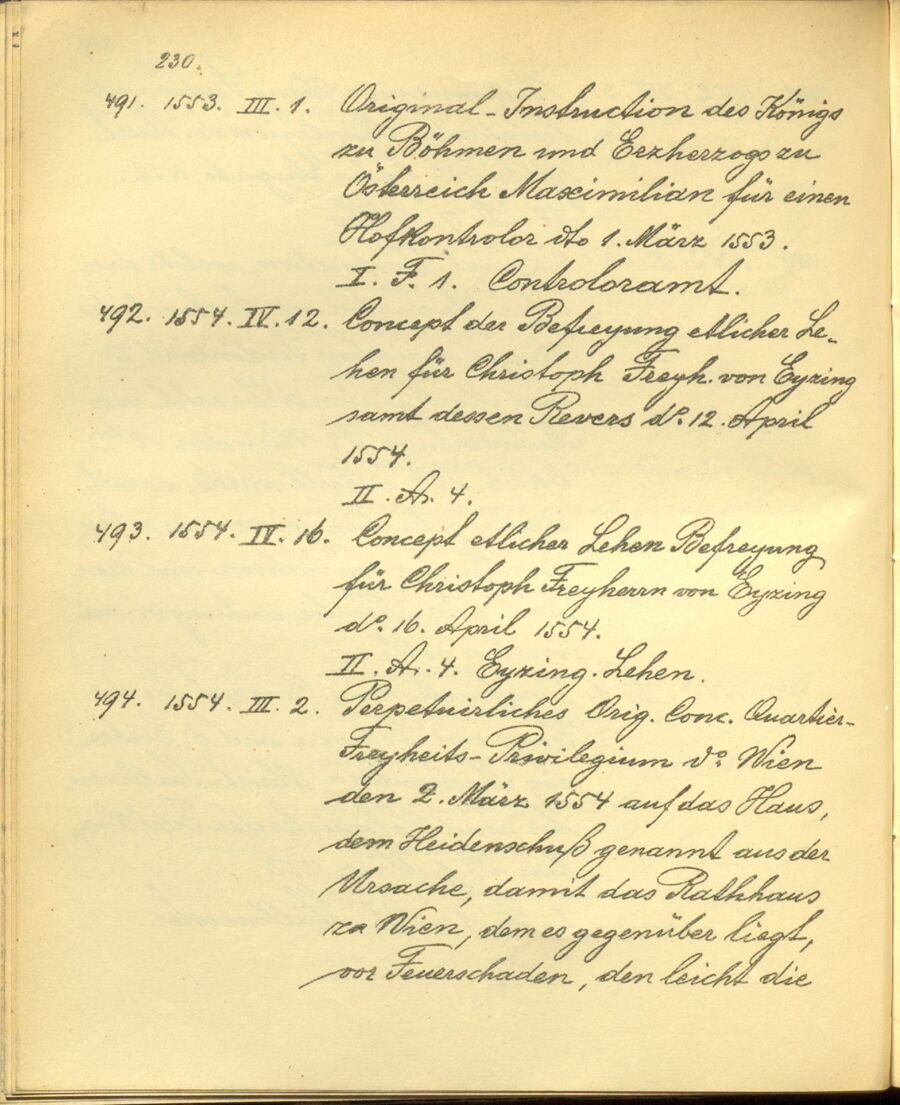 230.
491. 1553. III. 1. Original-Instruction des Königs
zu Böhmen und Erzherzogs zu
Österreich Maximilian für einen
Hofkontrolor dto 1. März 1553.
I. F. 1. Controloramt.
492. 1554. IV. 12. Concept der Befreyung etlicher Le-
hen für Christoph Freyh. von Eyzing
samt dessen Revers do. 12. April
1554.
II. A. 4.
493. 1554. IV. 16. Concept etlicher Lehen Befreyung
für Christoph Freyherrn von Eyzing
do. 16. April 1554.
II. A. 4. Eyzing. Lehen.
494. 1554. III. 2. Perpetuirliches Orig. Conc. Quartier-
Freyheits-Privilegium do. Wien
den 2. März 1554 auf das Haus,
dem Heidenschuß genannt aus der
Ursache, damit das Rathhaus
zu Wien, dem es gegenüber liegt,
vor Feuerschaden, den leicht die